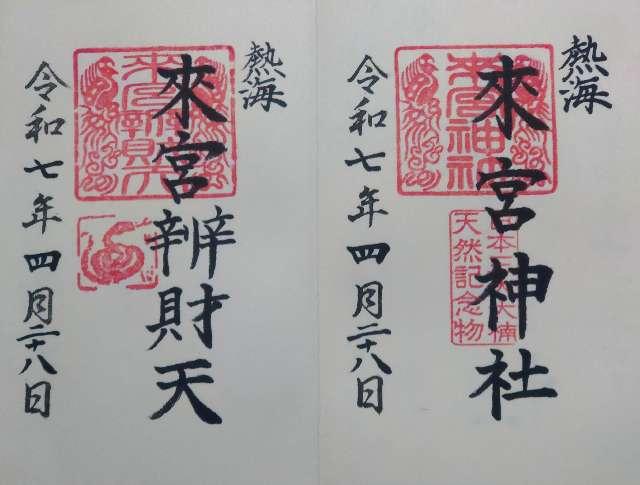 熱海
來宮神社
令和七年四月二十八日
來宮神社
天然記念物
熱海
來宮辨財天
令和七年四月二十八日
來宮辨財天